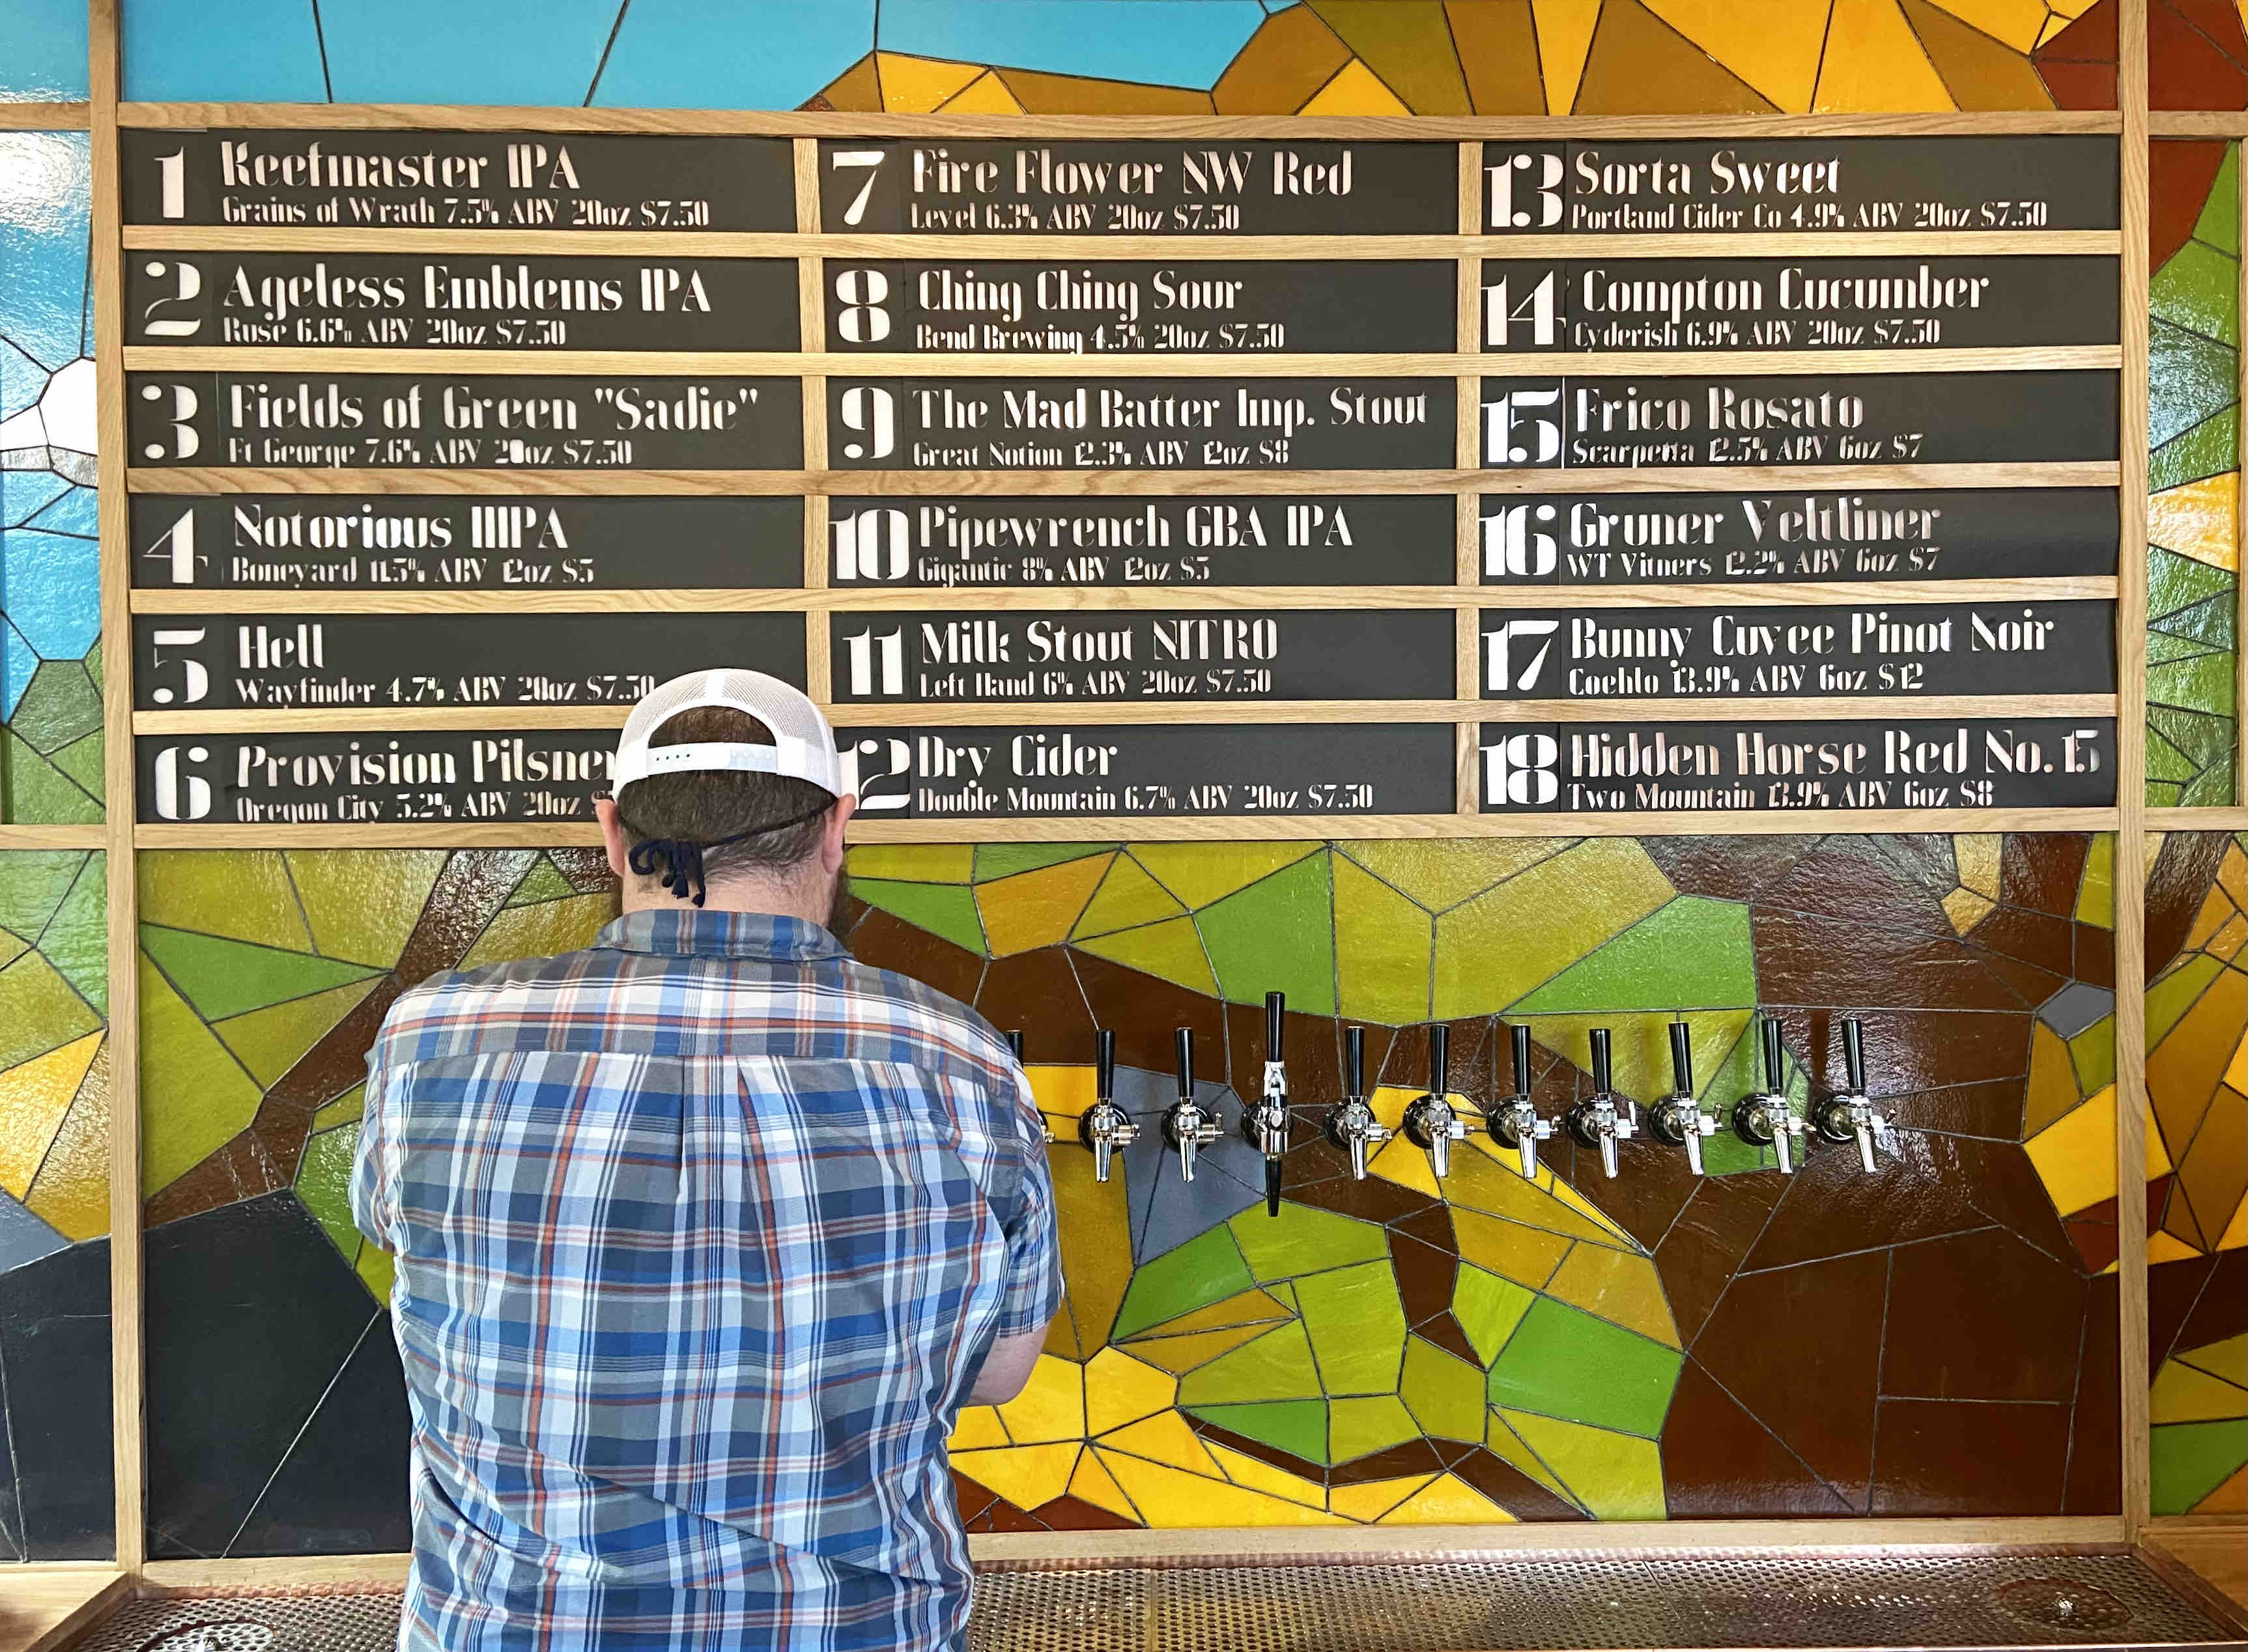 1 Reefmaster IPA
Grains of Wrath 7.5% ABV 20oz $7.50
2 Ageless Emblems IPA
Ruse 6.6% ABV 20oz $7.50
3 Fields of Green "Sadie"
Ft George 7.6% ABV 20oz $7.50
4 Notorious IIIPA
Boneyard 11.5% ABV 12oz $5
5 Hell
Wayfinder 4.7% ABV 20oz $7.50
6 Provision Pilsner
Oregon City 5.2% ABV 20oz
7 Fire Flower NW Red
Level 6.3% ABV 20oz $7.50
8 Ching Ching Sour
Bend Brewing 4.5% 20oz $7.50
9 The Mad Batter Imp. Stout
Great Notion 12.3% ABV 12oz $8
10 Pipewrench GBA IPA
Gigantic 8% ABV 12oz $5
11 Milk Stout NITRO
Left Hand 6% ABV 20oz $7.50
12 Dry Cider
Double Mountain 6.7% ABV 20oz $7.50
13 Sorta Sweet
Portland Cider Co 4.9% ABV 20oz $7.50
14 Compton Cucumber
Cyderish 6.9% ABV 20oz $7.50
15 Frico Rosato
Scarpetta 12.5% ABV 6oz $7
16 Gruner Veltliner
WT Vitners 12.2% ABV 6oz $7
17 Bunny Cuvee Pinot Noir
Coehlo 13.9% ABV 6oz $12
18 Hidden Horse Red No. 15
Two Mountain 13.9% ABV 6oz $8